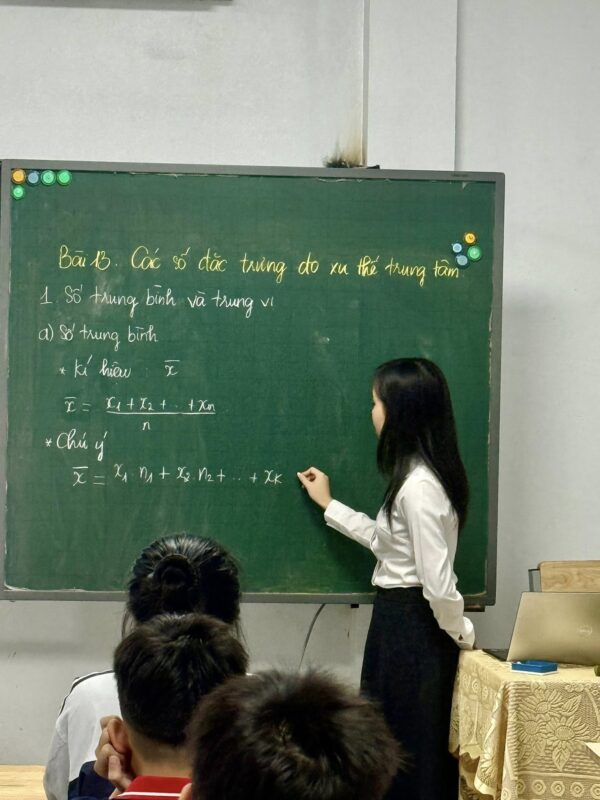 Bài 13. Các số đặc trưng đo xu thế trung tâm
1. Số trung bình và trung vị
a) Số trung bình
* Kí hiệu : x̄
x̄ = (x₁ + x₂ + .. + xₙ) / n
* Chú ý
x̄ = x₁ . n₁ + x₂ . n₂ + .. + xₖ
DELL